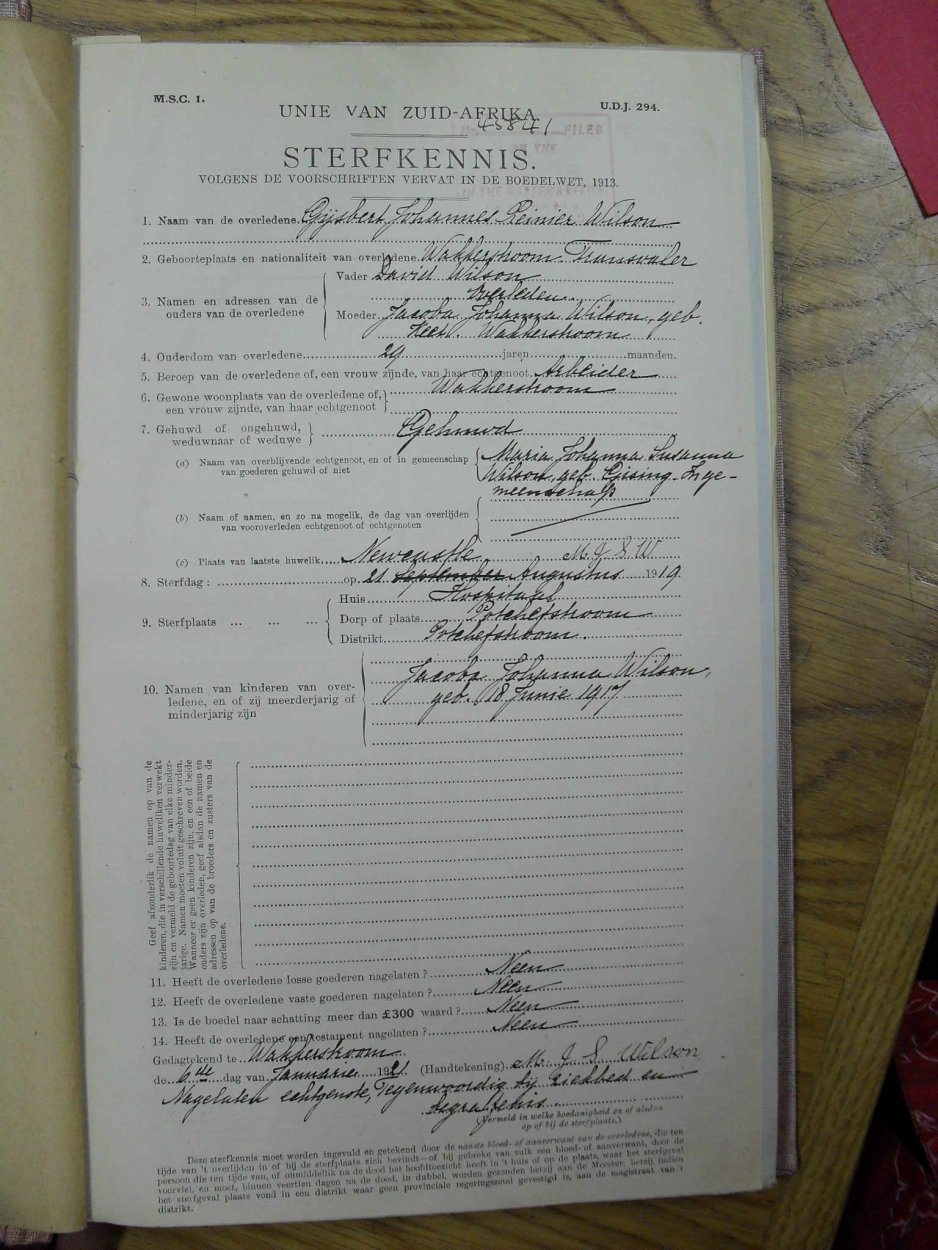 M.S.C. 1.
U.D.J. 294.
UNIE VAN ZUID-AFRIKA
45841
FILED
STERFKENNIS.
VOLGENS DE VOORSCHRIFTEN VERVAT IN DE BOEDELWET, 1913.
1. Naam van de overledene Gijsbert Johannes Reinier Wilson
2. Geboorteplaats en nationaliteit van overledene Wakkerstroom Transvaler
3. Namen en adressen van de ouders van de overledene
Vader David Wilson
overleden
Moeder Jacoba Johanna Wilson, geb.
Wakkerstroom
4. Ouderdom van overledene 29 jaren maanden.
5. Beroep van de overledene of, een vrouw zijnde, van haar echtgenoot Arbeider
6. Gewone woonplaats van de overledene of, een vrouw zijnde, van haar echtgenoot Wakkerstroom
7. Gehuwd of ongehuwd, weduwnaar of weduwe Gehuwd
(a) Naam van overblijvende echtgenoot, en of in gemeenschap van goederen gehuwd of niet
Maria Johanna Susanna
Wilson, geb. Gising. In ge-
meenschap
(b) Naam of namen, en zo na mogelik, de dag van overlijden van vooroverleden echtgenoot of echtgenoten
(c) Plaats van laatste huwelik Newcastle M J S W
8. Sterfdag : op 21 September Augustus 1919
9. Sterfplaats ... ... ...
Huis Hospitaal
Dorp of plaats Potchefstroom
Distrikt Potchefstroom
10. Namen van kinderen van overledene, en of zij meerderjarig of minderjarig zijn
Jacoba Johanna Wilson,
geb. 18 Junie 1917
Geef afzonderlik de namen op van de
kinderen, die in verschillende huweliken verwekt
zijn en vermeld de geboortedag van elke minder-
jarige. Namen moeten voluit geschreven worden.
Wanneer er geen kinderen zijn, en een of beide
ouders zijn overleden, geef alsdan de namen en
adressen op van de broeders en zusters van de
overledene.
11. Heeft de overledene losse goederen nagelaten ? Neen
12. Heeft de overledene vaste goederen nagelaten ? Neen
13. Is de boedel naar schatting meer dan £300 waard ? Neen
14. Heeft de overledene een testament nagelaten ? Neen
Gedagtekend te Wakkerstroom
de 6de dag van Januarie 1921 (Handtekening) M J S Wilson
Nagelaten echtgenote, Tegenwoordig bij Ziekbed en
begrafenis
(Vermeld in welke hoedanigheid en of alsdan
op of bij de sterfplaats.)
Deze sterfkennis moet worden ingevuld en getekend door de naaste bloed- of aanverwant van de overledene, die ten
tijde van 't overlijden in of bij de sterfplaats zich bevindt—of bij gebreke van zulk een bloed- of aanverwant, door de
persoon die ten tijde van, of onmiddellik na de dood het hoofdtoezicht heeft in 't huis of op de plaats, waar het sterfgeval
voorviel, en moet, binnen veertien dagen na de dood, in dubbel, worden gezonden hetzij aan de Meester, hetzij, indien
het sterfgeval plaats vond in een distrikt waar geen provinciale regeringszetel gevestigd is, aan de magistraat van 't
distrikt.